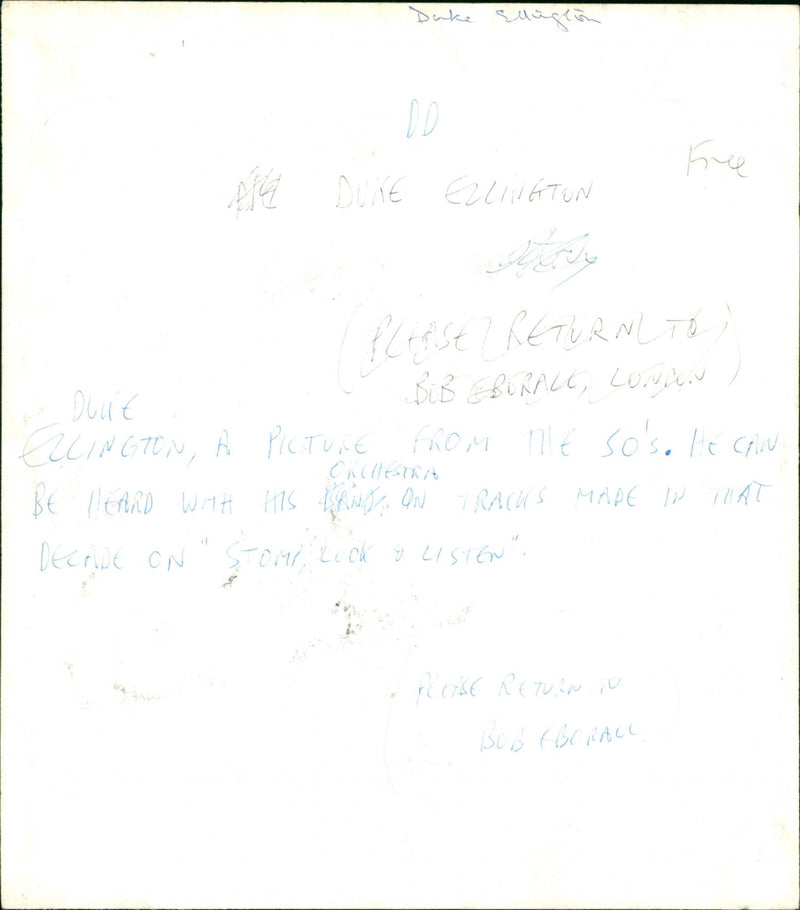 Duke Ellington
DD
Free
DUKE ELLINGTON
(PLEASE RETURN TO
BOB EBORALL, LONDON)
DUKE
ELLINGTON, A PICTURE FROM THE 50's. HE CAN
ORCHESTRA
BE HEARD WITH HIS BAND, ON TRACKS MADE IN THAT
DECADE ON "STOMP, LOOK & LISTEN".
(PLEASE RETURN TO
BOB EBORALL)